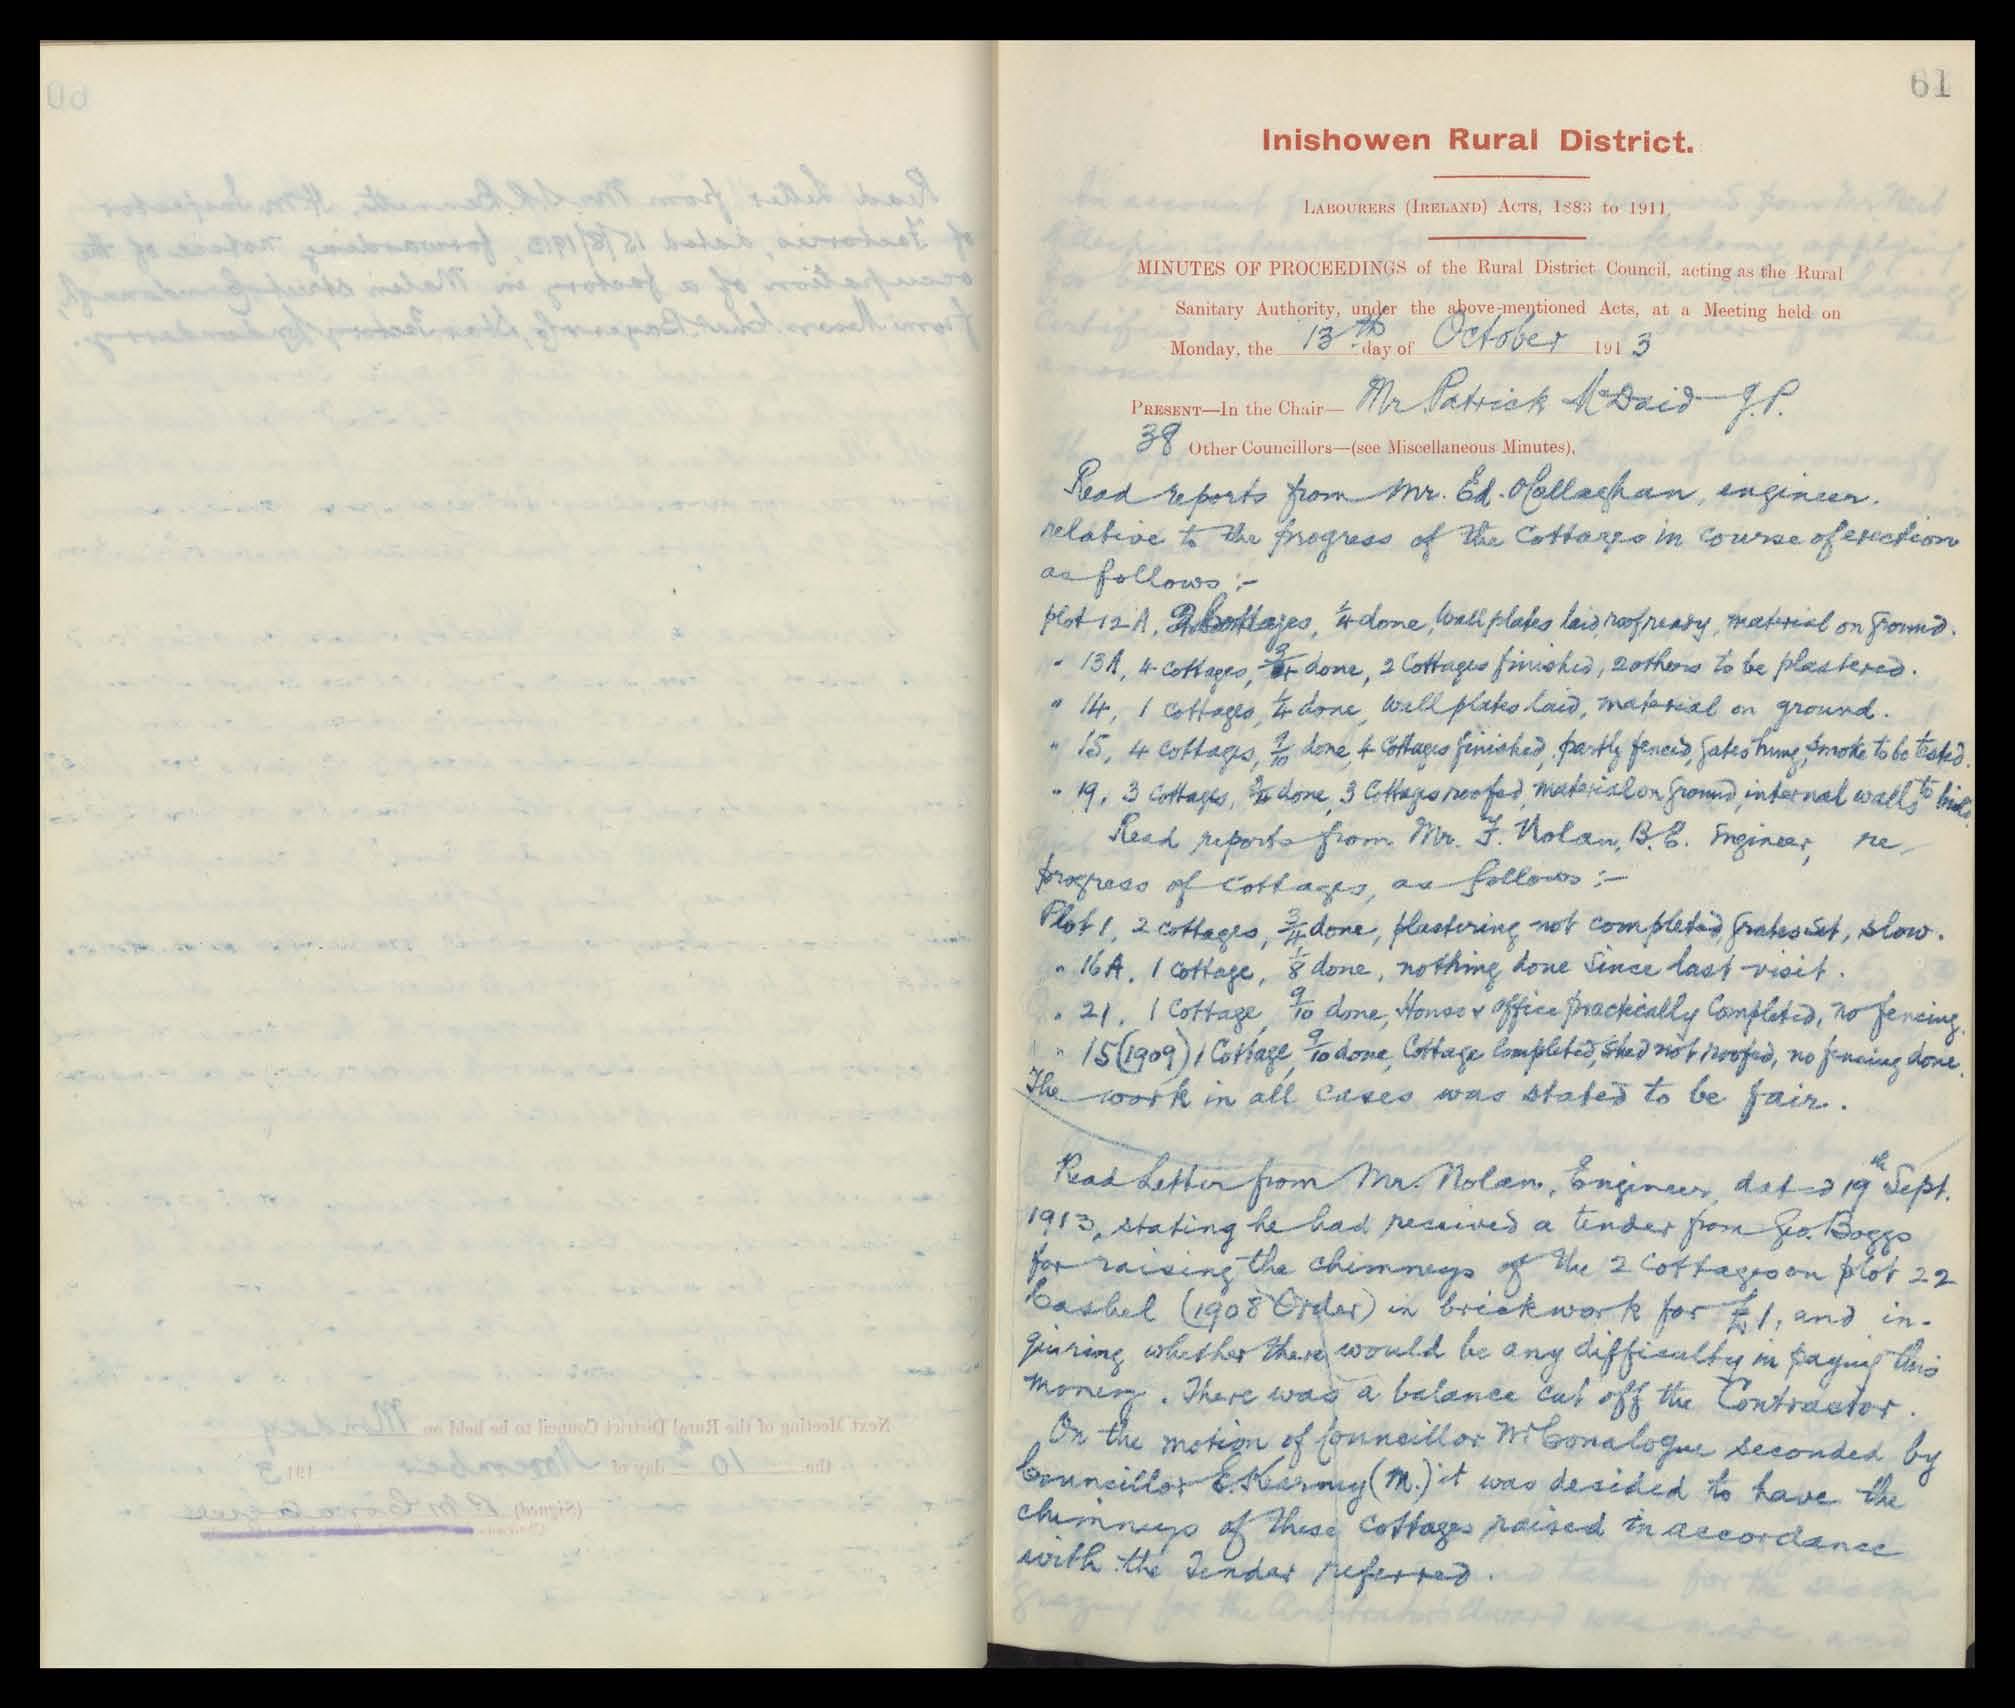 61
Inishowen Rural District.
LABOURERS (IRELAND) ACTS, 1883 to 1911.
MINUTES OF PROCEEDINGS of the Rural District Council, acting as the Rural
Sanitary Authority, under the above-mentioned Acts, at a Meeting held on
Monday, the 13th day of October 1913
PRESENT—In the Chair— Mr Patrick McDaid J.P.
38 Other Councillors—(see Miscellaneous Minutes).
Read reports from Mr. Ed. O'Callaghan, engineer.
relative to the progress of the Cottages in course of erection
as follows :-
plot 12 A, 2 Cottages, ¼ done, Wall plates laid, roof ready, material on ground.
" 13A, 4 cottages, ¾ done, 2 Cottages finished, 2 others to be plastered.
" 14, 1 cottages, ¼ done, wall plates laid, material on ground.
" 15, 4 cottages, 9/10 done, 4 Cottages finished, partly fenced, gates hung, smoke to be tested.
" 19, 3 cottages, done, 3 Cottages roofed, material on ground, internal walls to
Read reports from Mr. F. Nolan, B.E. Engineer, re
progress of cottages, as follows :-
Plot 1, 2 cottages, ¾ done, plastering not completed, grates set, slow.
" 16A. 1 cottage, ⅛ done, nothing done since last visit.
" 21. 1 Cottage, 9/10 done, House & office practically completed, no fencing.
" 15 (1909) 1 Cottage, 9/10 done, Cottage completed, shed not roofed, no fencing done.
The work in all cases was stated to be fair.
Read Letter from Mr. Nolan, Engineer, dated 19th Sept.
1913, stating he had received a tender from Geo. Boggs
for raising the chimneys of the 2 cottages on plot 22
Cashel (1908 Order) in brickwork for £1, and in-
quiring whether there would be any difficulty in paying this
money. There was a balance cut off the Contractor.
On the motion of Councillor McConalogue seconded by
Councillor E. Kearney (M.) it was desided to have the
chimneys of these cottages raised in accordance
with the Tender referred.